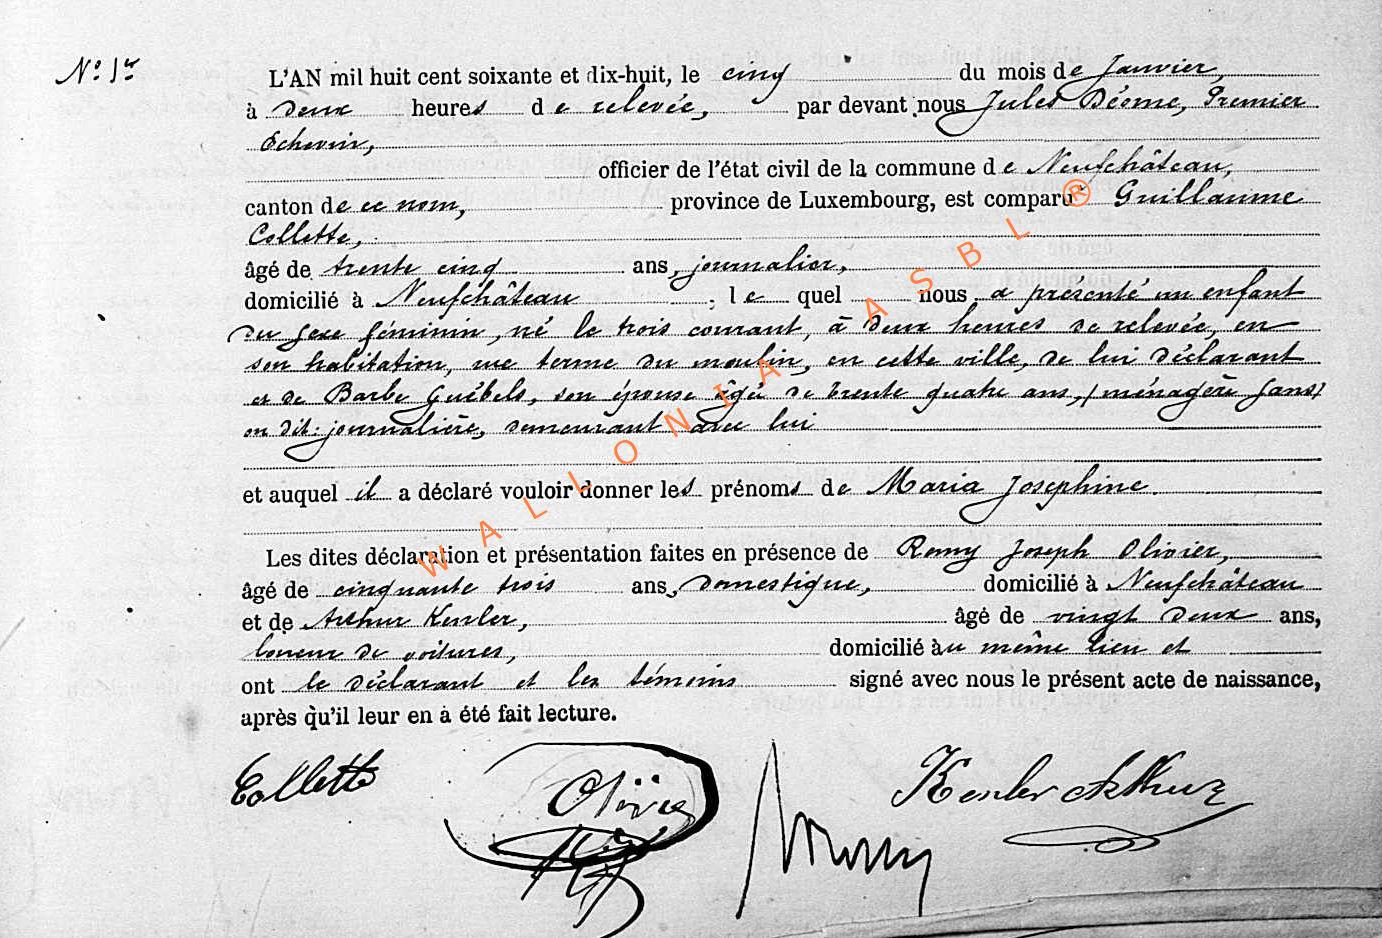 N° 1er
L'AN mil huit cent soixante et dix-huit, le cinq du mois de Janvier,
à Deux heures de relevée, par devant nous Jules Déome, Premier
Echevin,
officier de l'état civil de la commune de Neufchâteau,
canton de ce nom, province de Luxembourg, est comparu Guillaume
Collette,
âgé de trente cinq ans, journalier,
domicilié à Neufchâteau ; le quel nous a présenté un enfant
du sexe féminin, né le trois courant, à deux heures de relevée, en
son habitation, rue terme du moulin, en cette ville, de lui déclarant
et de Barbe Guébels, son épouse âgée de trente quatre ans, (ménagère sans)
on dit: journalière, demeurant avec lui
et auquel il a déclaré vouloir donner les prénoms de Maria Josephine.
Les dites déclaration et présentation faites en présence de Remy Joseph Olivier,
âgé de cinquante trois ans, Domestique, domicilié à Neufchâteau
et de Arthur Kenler, âgé de vingt deux ans,
loueur de voitures, domicilié au même lieu et
ont le déclarant et les témoins signé avec nous le présent acte de naissance,
après qu'il leur en a été fait lecture.
Collette Olivier Kenler Arthur
WALLONIA ASBL ®